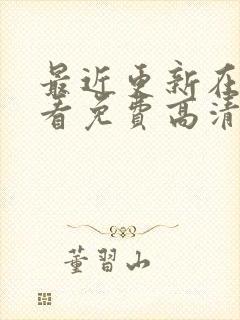 最近更新在
看免费高清
董習山